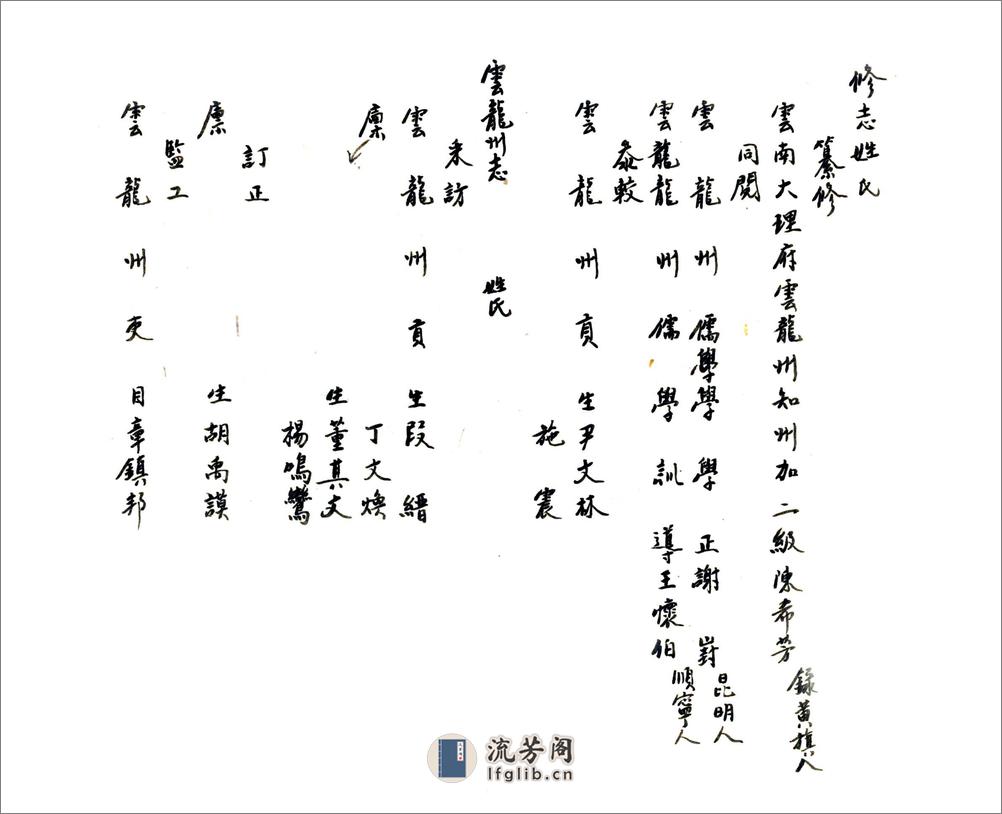 修志姓氏
纂修
雲南大理府雲龍州知州加二級陳希芳 鑲黃旗人
同閱
雲龍州儒學學學正謝 昆明人
雲龍龍州儒學訓導王懷伯 順寧人
叅較
雲龍州貢生尹文林
施震
雲龍州志 姓氏
采訪
雲龍州貢生段縉
廩 丁文煥
生董其文
楊鳴鸞
訂正
廩生胡禹謨
監工
雲龍州吏目章鎮邦
流芳阁
lfglib.cn